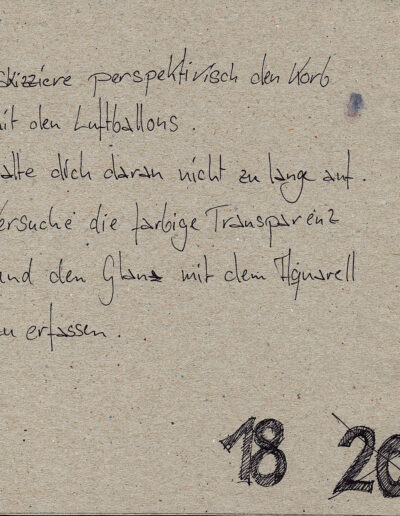 skizziere perspektivisch den Korb
mit den Luftballons.
alte dich daran nicht zu lange auf.
ersuche die farbige Transparenz
und den Glanz mit dem Aquarell
zu erfassen.
18 20